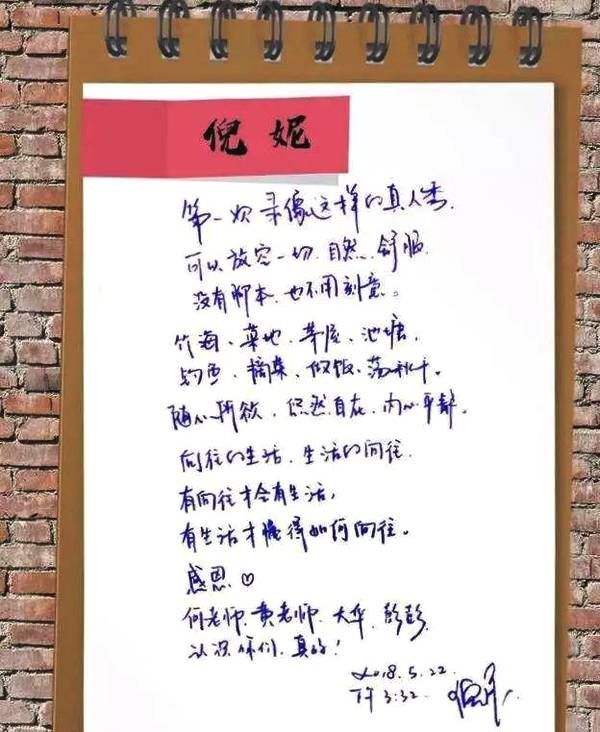 倪妮
第一次录像这样的真人秀.
可以放空一切.自然.舒服.
没有脚本.也不用刻意。
竹海、菜地、茅屋、池塘.
钓鱼、摘菜、做饭、荡秋千.
随心所欲、悠然自在、内心平静。
向往的生活.生活的向往.
有向往才会有生活,
有生活才懂得如何向往。
感恩♡
何老师.黄老师.大华.彭彭.
认识你们.真好!
2018.5.22.
下午3:32. 倪妮